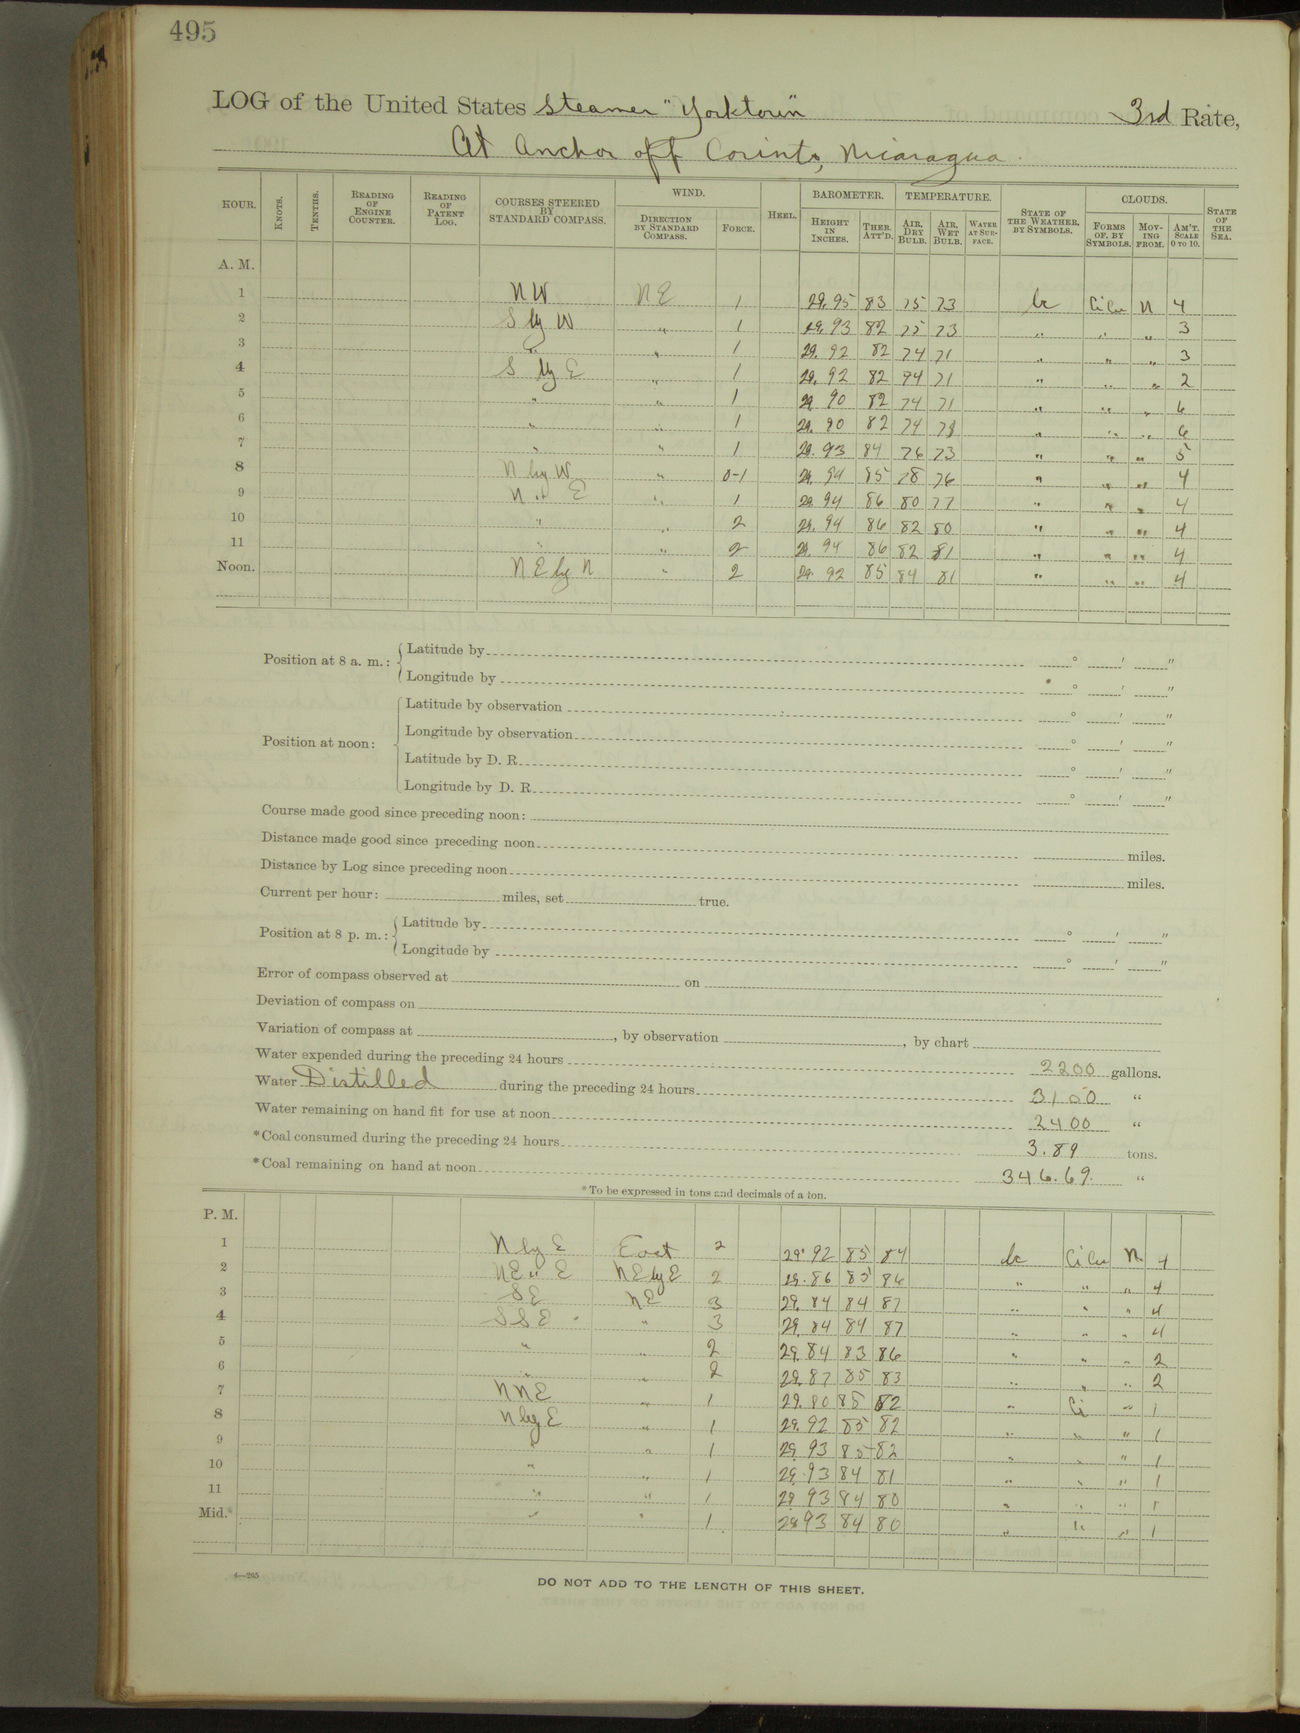 495
LOG of the United States Steamer "Yorktown" 3rd Rate,
At Anchor off Corinto, Nicaragua.
HOUR. KNOTS. TENTHS. READING OF ENGINE COUNTER. READING OF PATENT LOG. COURSES STEERED BY STANDARD COMPASS. WIND. DIRECTION BY STANDARD COMPASS. FORCE. HEEL. BAROMETER. HEIGHT IN INCHES. THER. ATT'D. TEMPERATURE. AIR, DRY BULB. AIR, WET BULB. WATER AT SURFACE. STATE OF THE WEATHER, BY SYMBOLS. CLOUDS. FORMS OF, BY SYMBOLS. MOVING FROM. AM'T. SCALE 0 TO 10. STATE OF THE SEA.
A. M.
1 NW NE 1 29.95 83 75 73 bc Ci Cu N 4
2 S by W " 1 29.93 82 75 73 " " " 3
3 " " 1 29.92 82 74 71 " " " 3
4 S by E " 1 29.92 82 74 71 " " " 2
5 " " 1 29.90 82 74 71 " " " 6
6 " " 1 29.90 82 74 " " " 6
7 " " 1 29.93 84 76 73 " " " 5
8 N by W " 0-1 29.94 85 78 76 " " " 4
9 N " E " 1 29.94 86 80 77 " " " 4
10 " " 2 29.94 86 82 80 " " " 4
11 " " 2 29.94 86 82 81 " " " 4
Noon. NE by N " 2 29.92 85 84 81 " " " 4
Position at 8 a. m.: Latitude by ° ' "
Longitude by ° ' "
Position at noon: Latitude by observation ° ' "
Longitude by observation ° ' "
Latitude by D. R. ° ' "
Longitude by D. R. ° ' "
Course made good since preceding noon:
Distance made good since preceding noon miles.
Distance by Log since preceding noon miles.
Current per hour: miles, set true.
Position at 8 p. m.: Latitude by ° ' "
Longitude by ° ' "
Error of compass observed at on
Deviation of compass on
Variation of compass at , by observation , by chart
Water expended during the preceding 24 hours 2200 gallons.
Water Distilled during the preceding 24 hours 3100 "
Water remaining on hand fit for use at noon 2400 "
*Coal consumed during the preceding 24 hours 3.89 tons.
*Coal remaining on hand at noon 346.69. "
*To be expressed in tons and decimals of a ton.
P. M.
1 N by E East 2 29.92 85 84 bc Ci Cu N. 4
2 NE " E NE by E 2 29.86 85 86 " " " 4
3 SE NE 3 29.84 84 87 " " " 4
4 SSE " 3 29.84 84 87 " " " 4
5 " " 2 29.84 83 86 " " " 2
6 " " 2 29.87 85 83 " " " 2
7 NNE " 1 29.90 85 82 " Ci " 1
8 N by E " 1 29.92 85 82 " " " 1
9 " " 1 29.93 85 82 " " " 1
10 " " 1 29.93 84 81 " " " 1
11 " " 1 29.93 84 80 " " " 1
Mid. " " 1 29.93 84 80 " " " 1
4—205
DO NOT ADD TO THE LENGTH OF THIS SHEET.